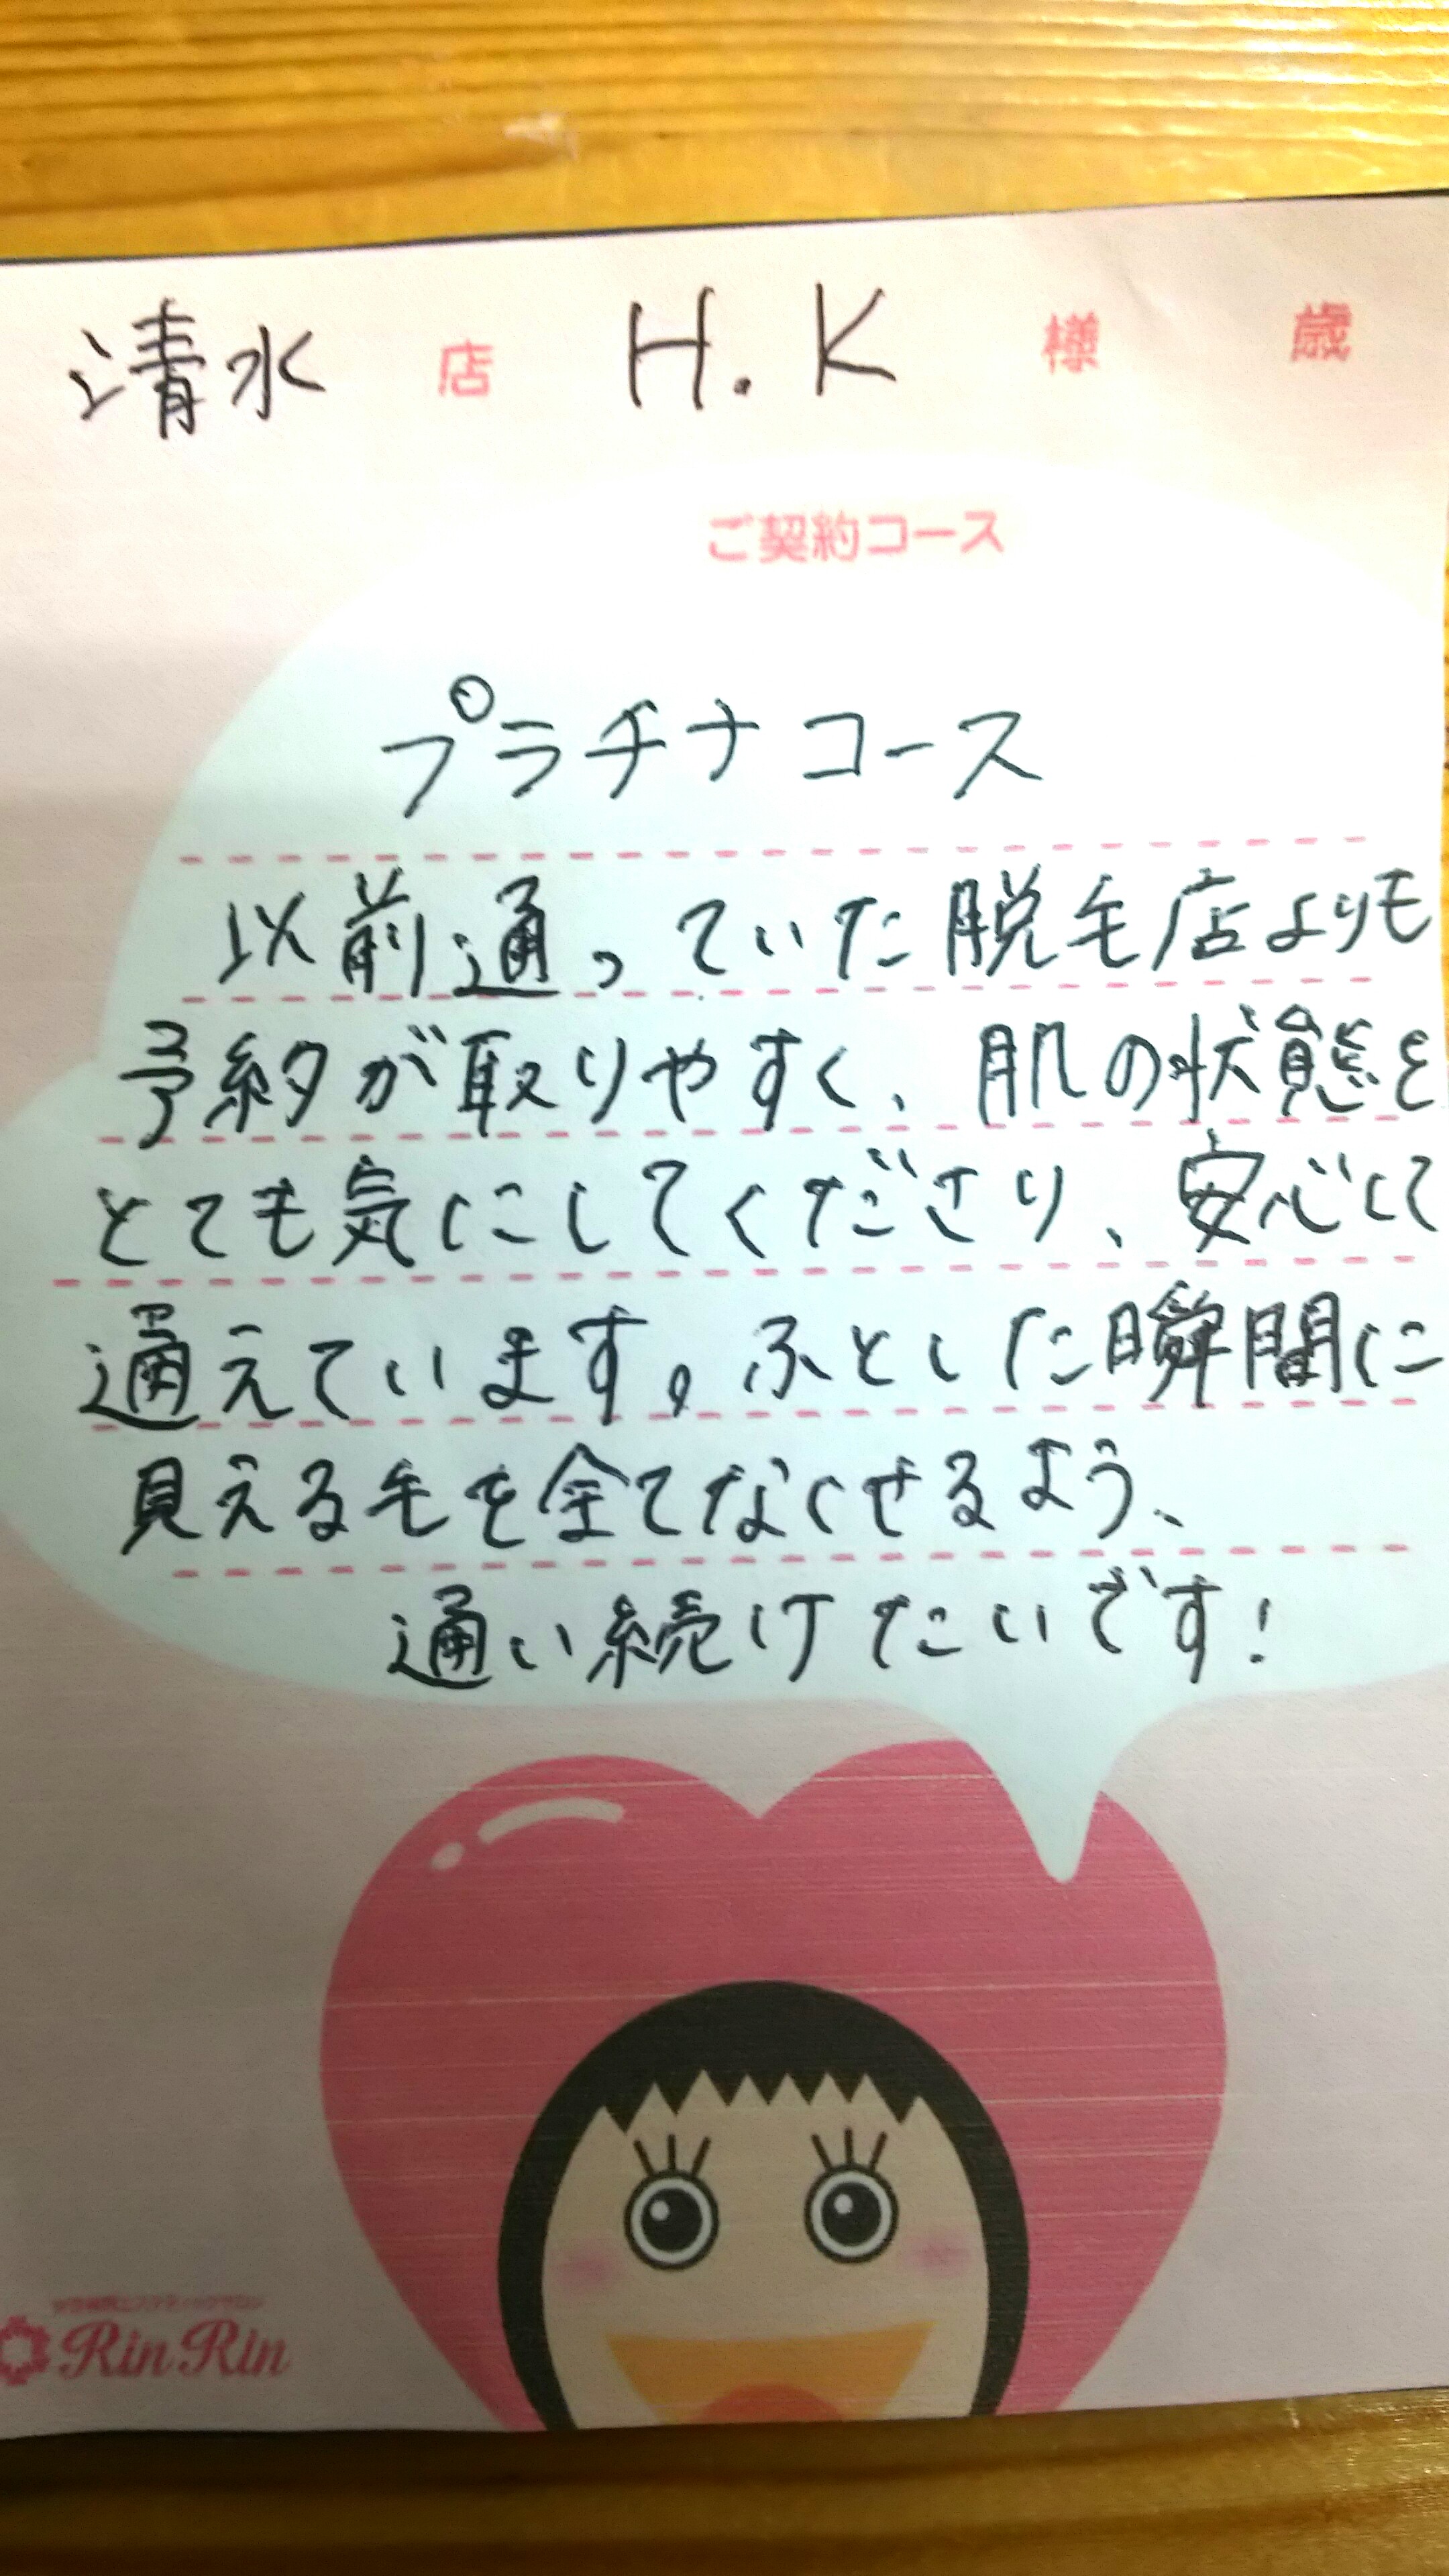 清水 店 H.K 様 歳
ご契約コース
プラチナコース
以前通っていた脱毛店よりも
予約が取りやすく、肌の状態を
とても気にしてくださり、安心して
通えています。ふとした瞬間に
見える毛を全てなくせるよう、
通い続けたいです!
RinRin